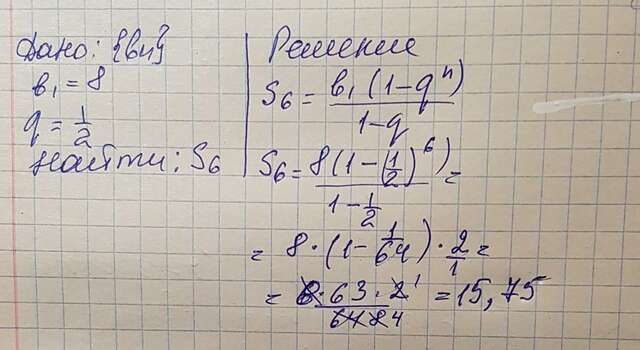 Дано: {bn}
b₁ = 8
q = 1/2
Найти: S₆
Решение
S₆ = b₁ (1-qⁿ) / 1-q
S₆ = 8(1-(1/2)⁶) / 1-1/2 =
= 8·(1-1/64)·2/1 =
= 8·63·2¹ / 64 8 4 = 15,75